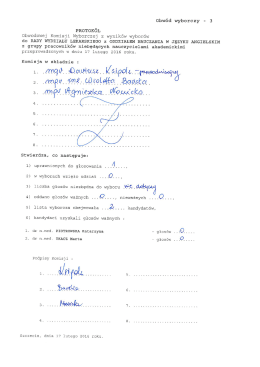 Obwód wyborczy - 3
PROTOKÓŁ
Obwodowej Komisji Wyborczej z wyników wyborów
do RADY WYDZIAŁU LEKARSKIEGO z ODDZIAŁEM NAUCZANIA W JĘZYKU ANGIELSKIM
z grupy pracowników niebędących nauczycielami akademickimi
przeprowadzonych w dniu 17 lutego 2016 roku.
Komisja w składzie :
1. mgr Dariusz - przewodniczący
2. mgr inż. Wioletta
3. mgr Agnieszka Nowicka
4.
5.
6.
7.
8.
Stwierdza, co następuje:
1) uprawnionych do głosowania ... 1 ....
2) w wyborach wzięło udział ... 0 ....
3) liczba głosów niezbędna do wyboru nie dotyczy
4) oddano głosów ważnych ... 0 ...., nieważnych ... 0 ....
5) lista wyborcza obejmowała ... 2 .... kandydatów.
6) kandydaci uzyskali głosów ważnych :
1. dr n.med. PIOTROWSKA Katarzyna - głosów .. 0 ....
2. dr n.med. TKACZ Marta - głosów .. 0 ....
Podpisy Komisji :
1.
2.
3.
4.
5.
6.
7.
8.
Szczecin, dnia 17 lutego 2016 roku.